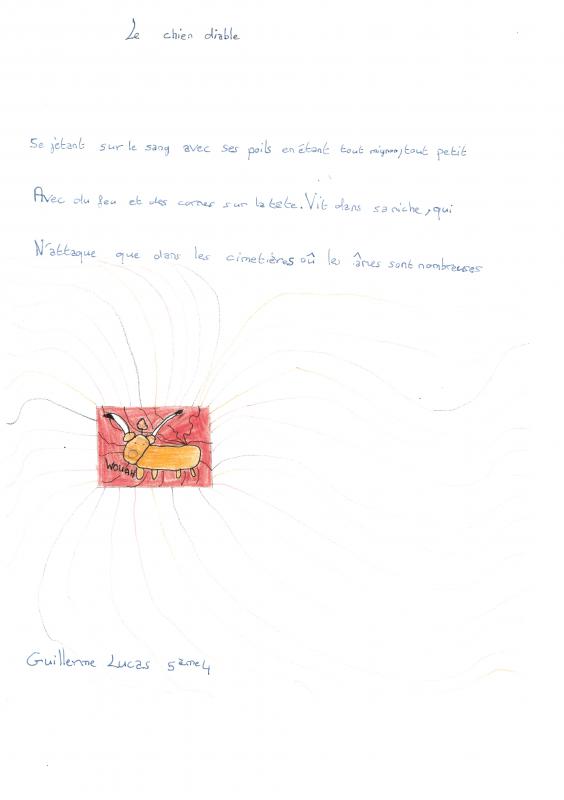 Le chien diable
Se jetant sur le sang avec ses poils en étant tout mignon, tout petit
Avec du feu et des cornes sur la tête. Vit dans sa niche, qui
N'attaque que dans les cimetières oû les âmes sont nombreuses
WOUAH
Guillerme Lucas 5ème4